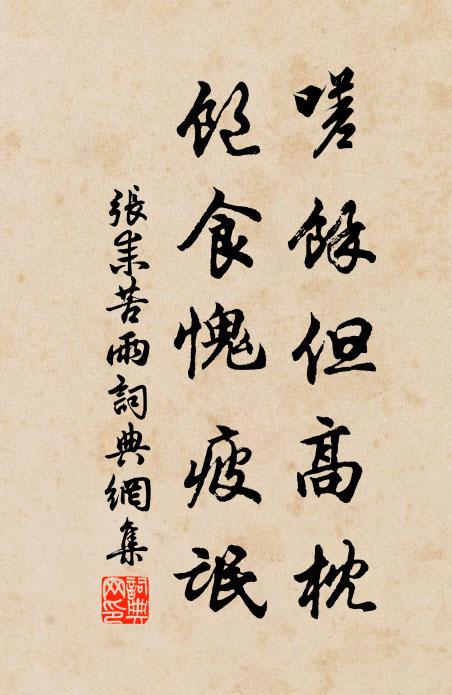 嗟餘但高枕
飽食愧疲氓
張耒苦雨詞典網集
詞典網印